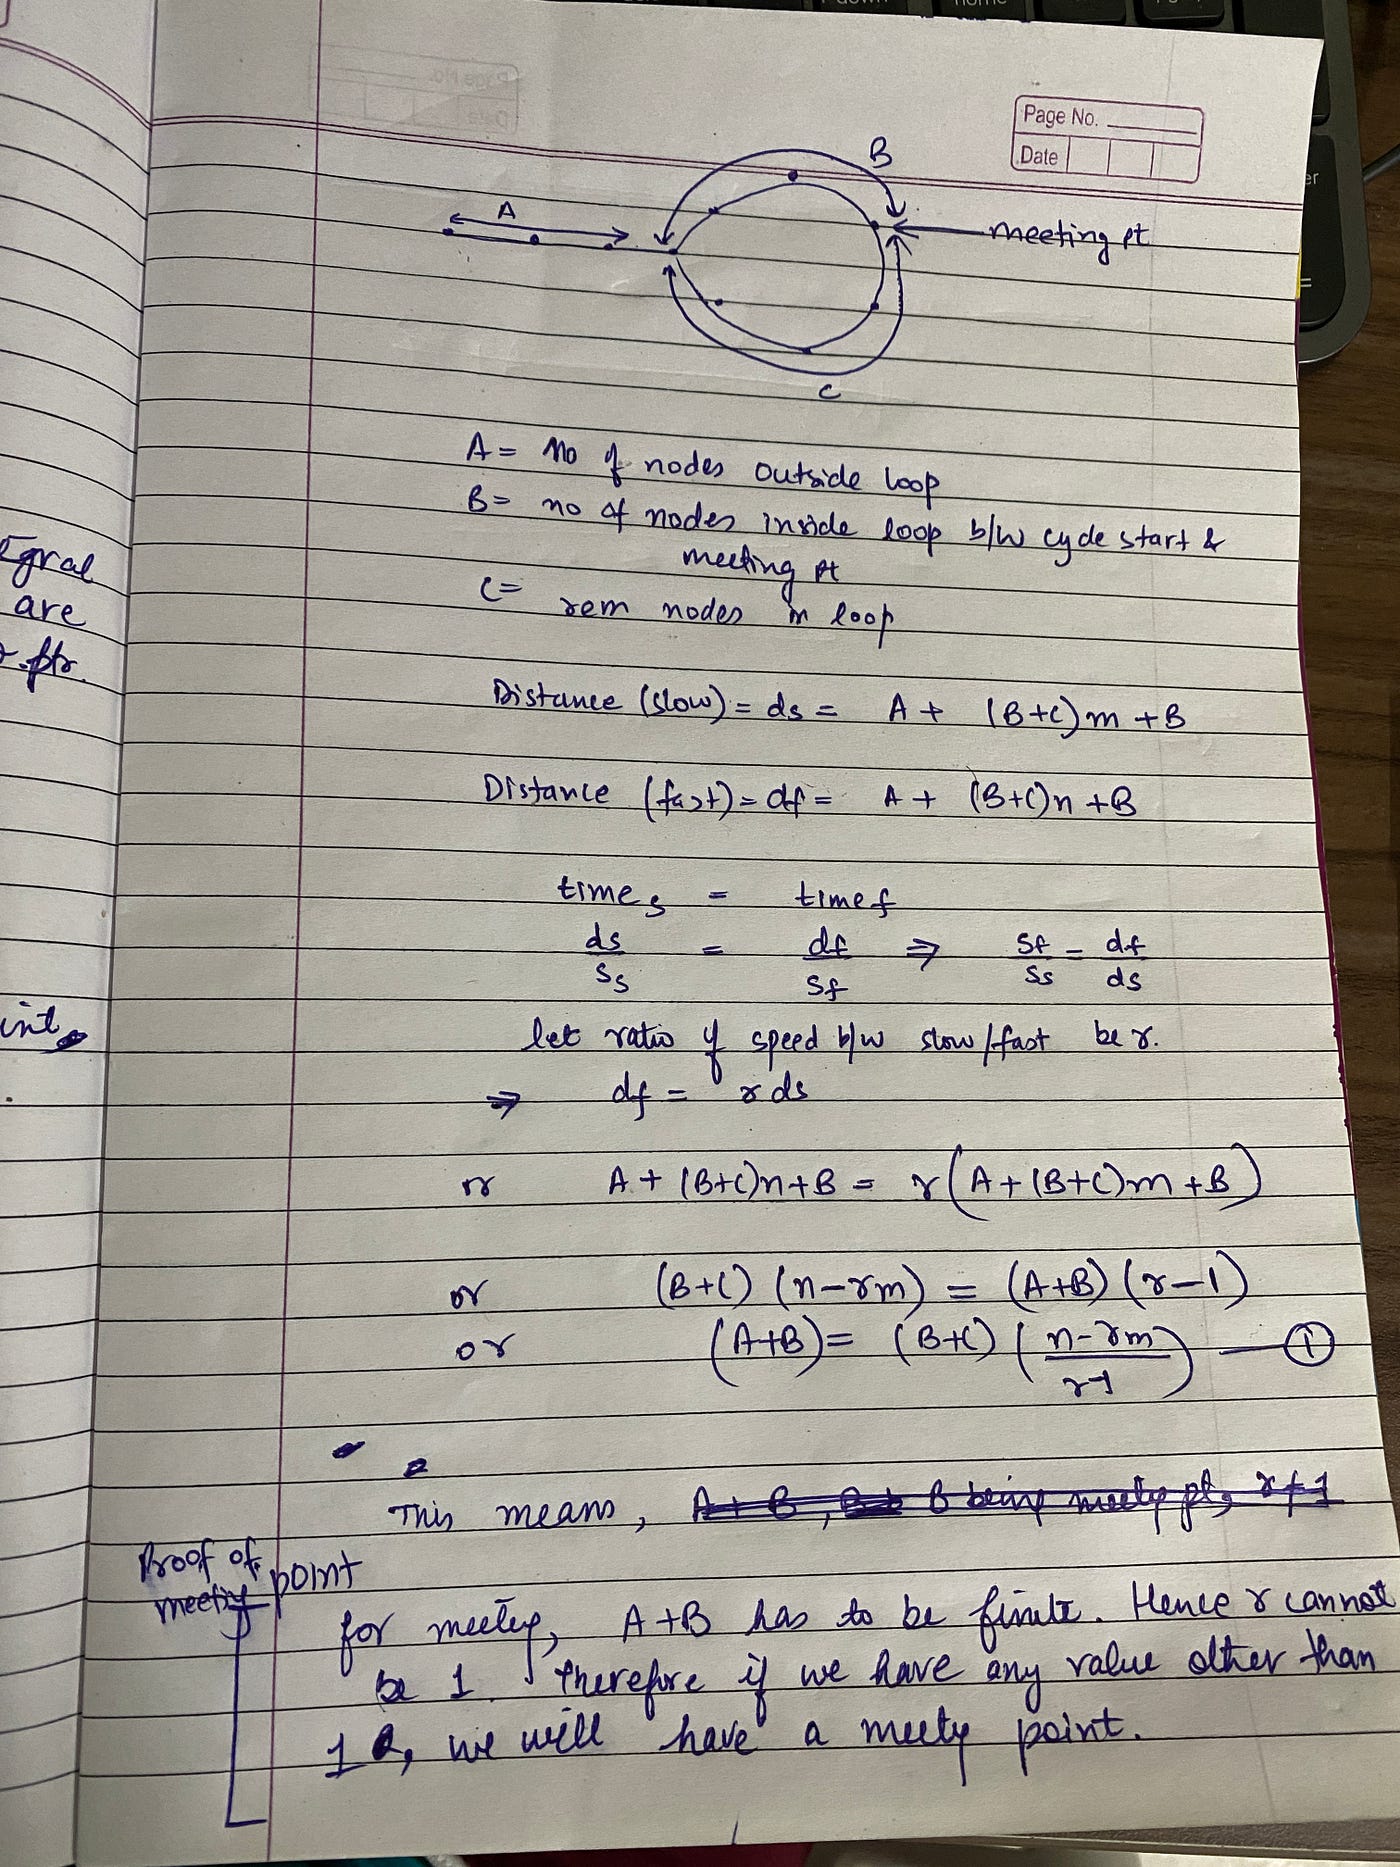 Page No.
Date
B
A
meeting pt
C
A = No of nodes outside loop
B = no of nodes inside loop b/w cycle start &
meeting pt
C = rem nodes in loop
Distance (slow) = ds = A + (B+C)m + B
Distance (fast) = df = A + (B+C)n + B
time s = time f
ds/Ss = df/Sf ⇒ Sf/Ss = df/ds
let ratio of speed b/w slow/fast be r.
⇒ df = r ds
or A + (B+C)n + B = r(A + (B+C)m + B)
or (B+C) (n-rm) = (A+B) (r-1)
or (A+B) = (B+C) (n-rm/r-1) — ①
This means, A+B, B being meety pt, r≠1
Proof of
meety point
for meety, A+B has to be finite. Hence r cannot
be 1. Therefore if we have any value other than
1, we will have a meety point.
egral
are
r ptr.
int